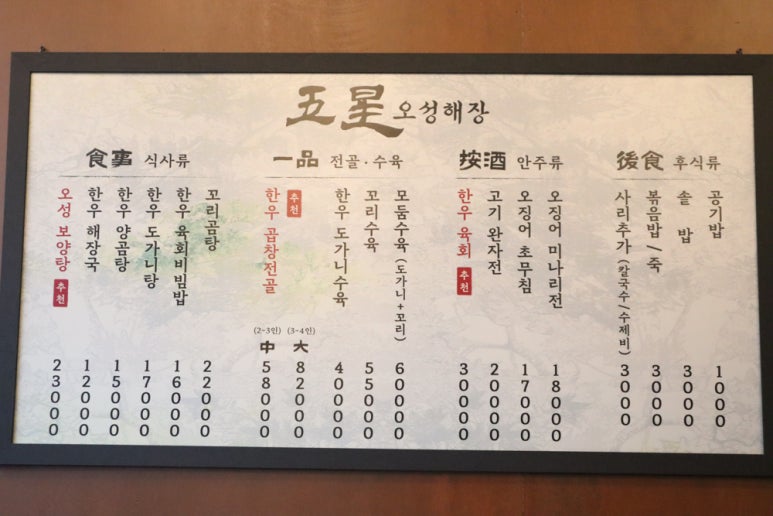 五星 오성해장
食事 식사류
오성 보양탕 추천 23000
한우 해장국 12000
한우 양곰탕 15000
한우 도가니탕 17000
한우 육회비빔밥 16000
꼬리곰탕 22000
一品 전골·수육
한우 곱창전골 추천
(2~3인) 中 58000
(3~4인) 大 82000
한우 도가니수육 40000
꼬리수육 55000
모둠수육 (도가니+꼬리) 60000
按酒 안주류
한우 육회 추천 30000
고기 완자전 20000
오징어 초무침 17000
오징어 미나리전 18000
後食 후식류
사리추가 (칼국수/수제비) 3000
볶음밥/죽 3000
솥 밥 3000
공기밥 1000